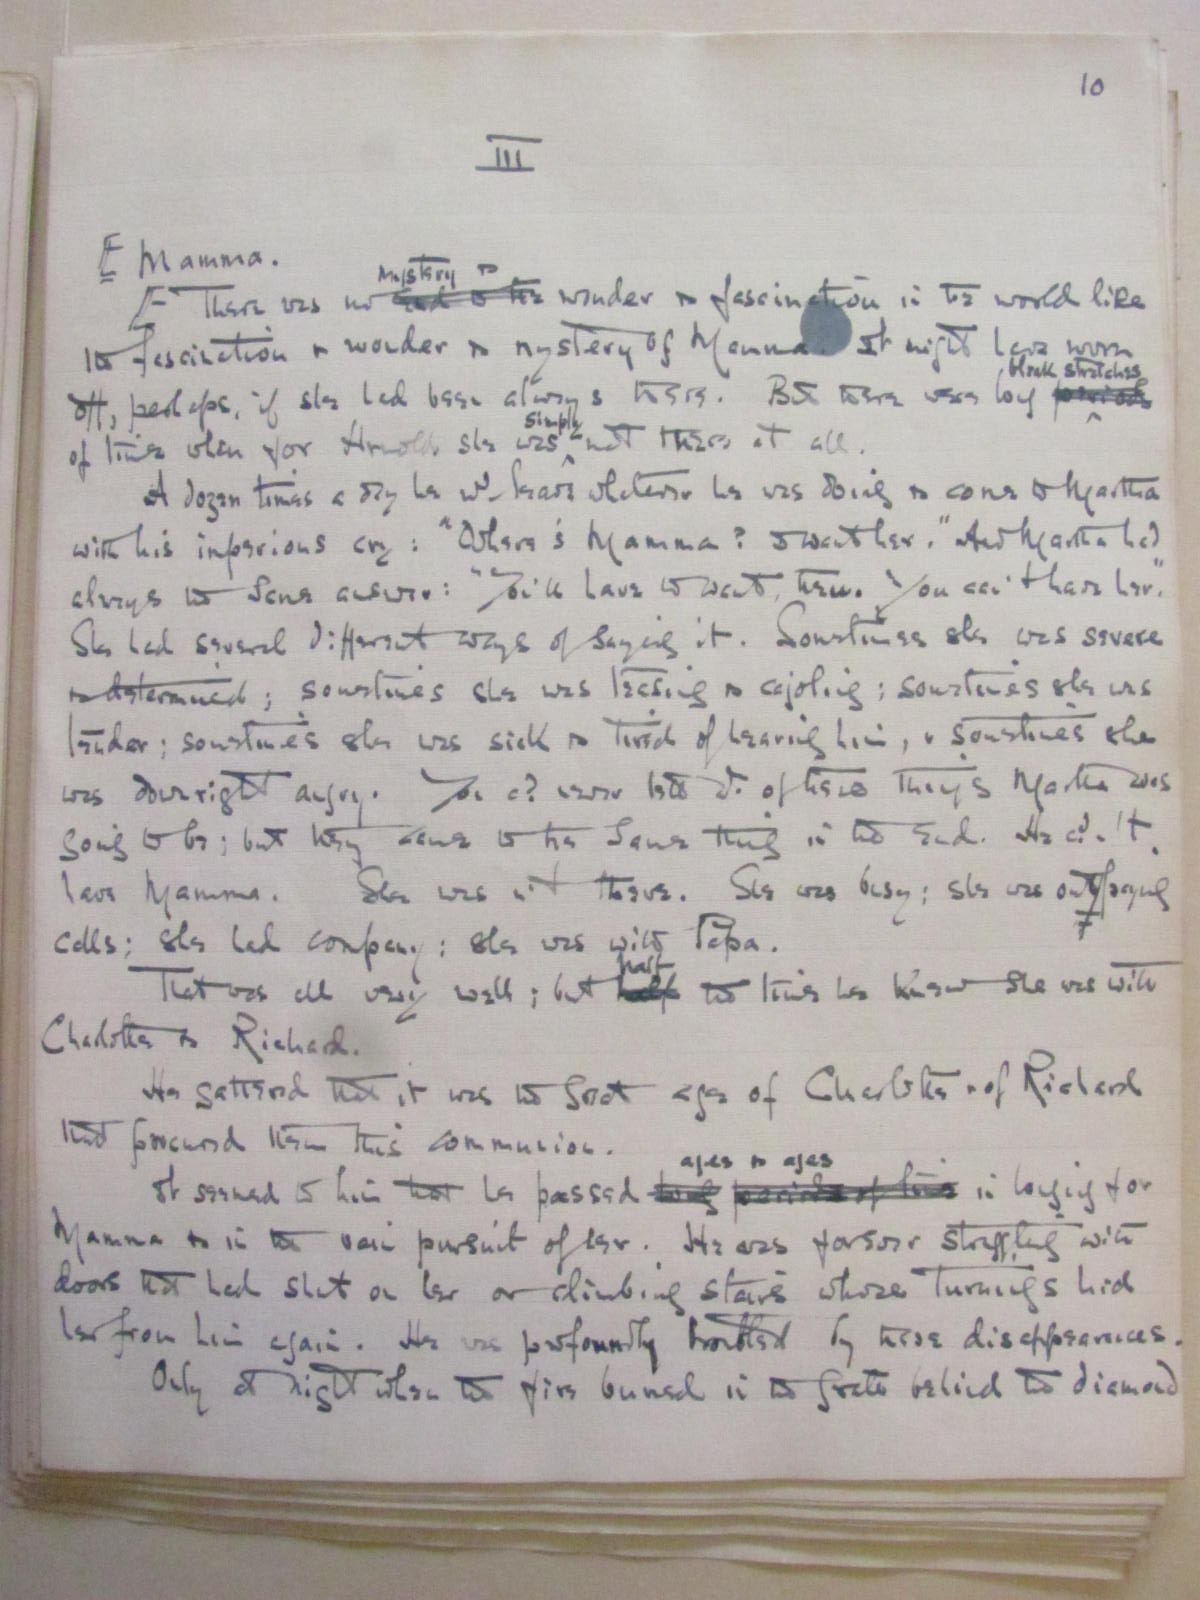 10
III
Mamma.
mystery &
There was no end to the wonder & fascination in the world like
the fascination & wonder & mystery of Mamma. It might have worn
black stretches
off, perhaps, if she had been always there. But there were long periods
simply
of time when for Arnold she was not there at all.
A dozen times a day he wd. leave whatever he was doing & come to Martha
with his imperious cry: "Where's Mamma? I want her." And Martha had
always the same answer: "You'll have to want, then. You can't have her."
She had several different ways of saying it. Sometimes she was severe
& determined; sometimes she was teasing & cajoling; sometimes she was
tender; sometimes she was sick & tired of hearing him, & sometimes she
was downright angry. You cd. never tell wh. of these things Martha was
going to be; but they came to the same thing in the end. He cd.n't
have Mamma. She wasn't there. She was busy; she was out paying
calls; she had company; she was with Papa.
half
That was all very well; but half the time he knew she was with
Charlotte & Richard.
He gathered that it was the great ages of Charlotte & of Richard
that procured them this communion.
ages & ages
It seemed to him that he passed long periods of time in longing for
Mamma & in the vain pursuit of her. He was forever struggling with
doors that had shut on her or climbing stairs whose turnings hid
her from him again. He was profoundly troubled by these disappearances.
Only at night when the fire burned in the grate behind the diamond